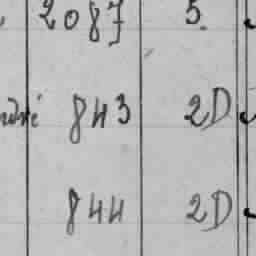 2087 5.
843 2D
844 2D